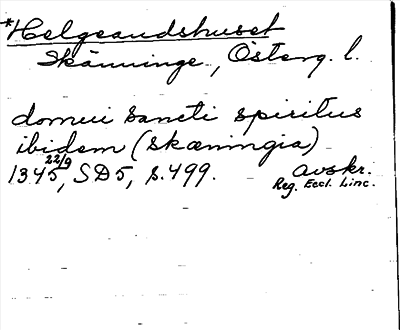 *Helgeandshuset
Skänninge, Österg. l.
domui sancti spiritus
ibidem (skæningia)
1345 22/9, SD5, s. 499. avskr.
Reg. Eccl. Linc.